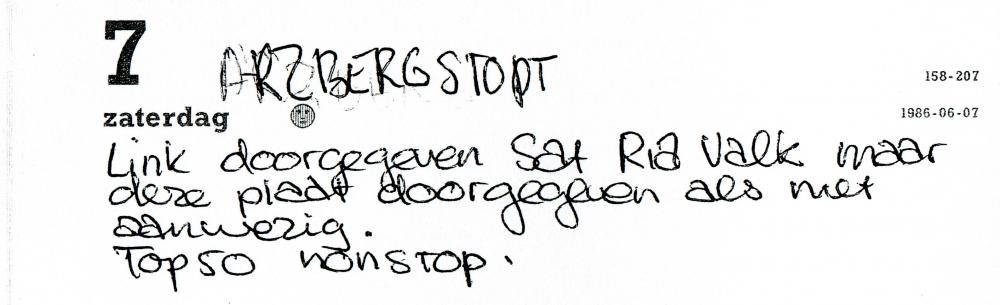 7
ARZBERG STOPT
158-207
zaterdag
1986-06-07
Link doorgegeven Sat Ria Valk maar
deze plaat doorgegeven als niet
aanwezig.
Top50 nonstop.